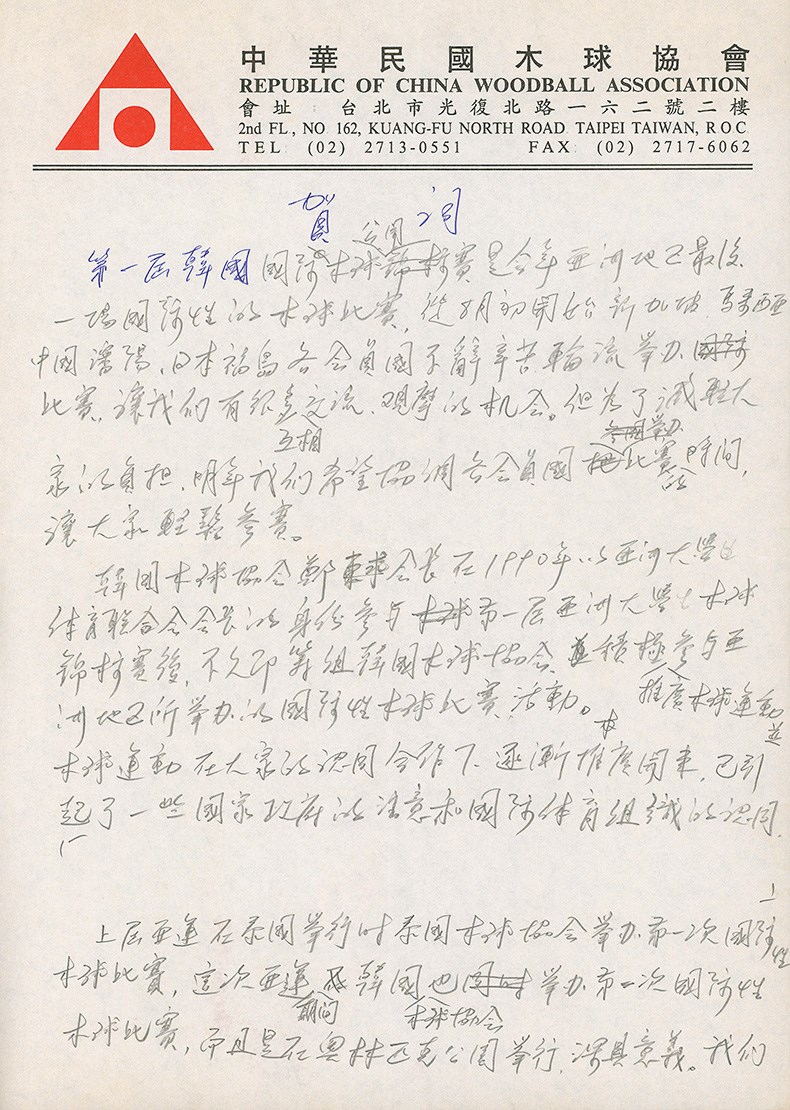 中華民國木球協會
REPUBLIC OF CHINA WOODBALL ASSOCIATION
會址：台北市光復北路一六二號二樓
2nd FL, NO 162, KUANG-FU NORTH ROAD TAIPEI TAIWAN, R O C
TEL: (02) 2713-0551 FAX: (02) 2717-6062
賀詞
公開
第一屆韓國國際木球錦标賽是今年亚洲地区最後
一場國際性的木球比賽，從8月初開始新加坡、馬來西亚
中國瀋陽、日本福島各会員國不辭辛苦輪流举办國際
比賽，讓我们有很多交流、观摩的机会。但为了減輕大
互相
各國举办
家的負担，明年我们希望協调各会員國把比賽時间，
讓大家輕鬆参賽。
韓国木球協会鄭会長在1990年以亚洲大學生
体育联合会会長的身份参与木球第一屆亚洲大學生木球
錦标賽後，不久即籌组韓国木球协会，並積極参与亚
推廣木球運動並
洲地区所举办的國際性木球比賽活動。
木球運動在大家的认同合作下，逐漸推廣開來，已引
起了一些國家政府的注意和國際体育組織的认同。
上屆亚運在泰國举行时泰国木球协会举办第一次國際性
木球比賽，這次亚運韓國也举办第一次國際性
期间
木球協会
木球比賽，而且是在奧林匹克公園举行，深具意義。我们